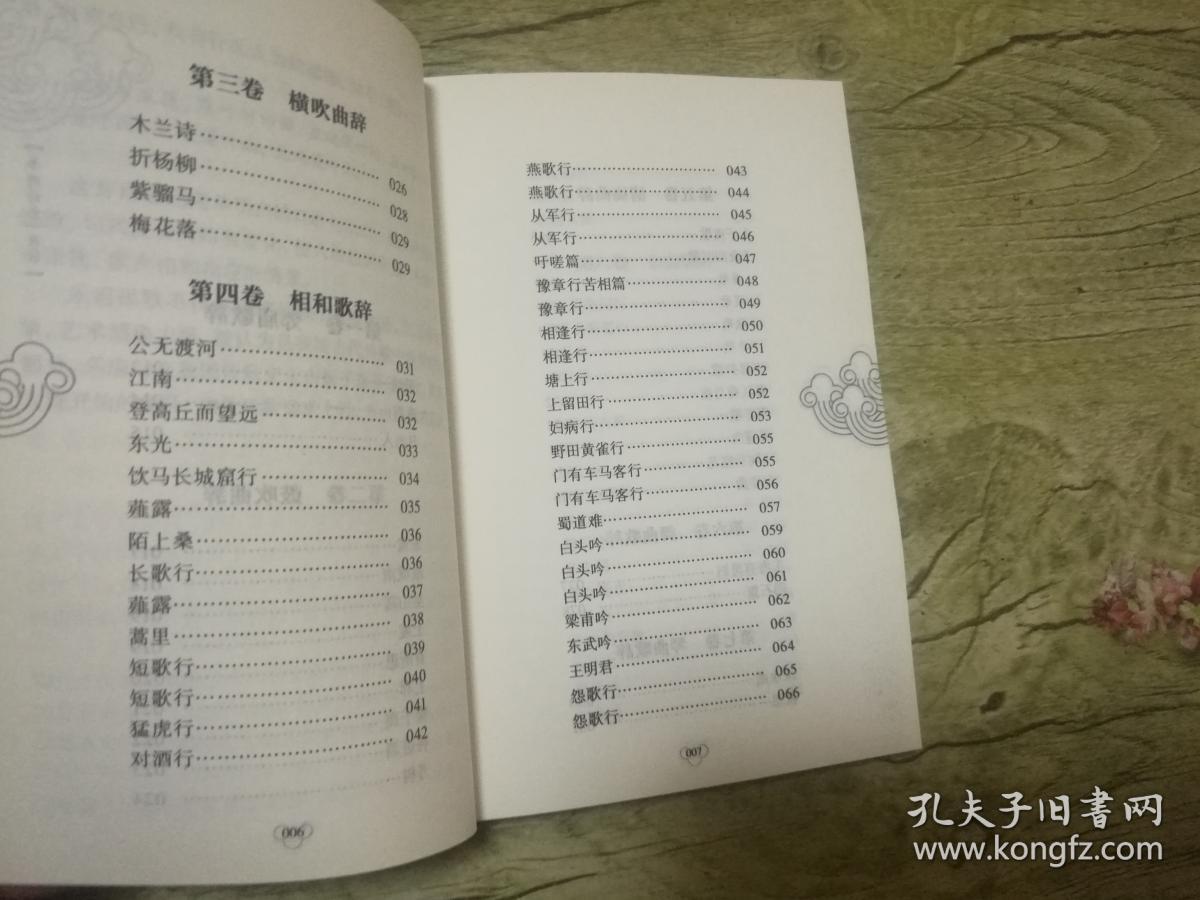 第三卷 横吹曲辞
木兰诗……026
折杨柳……028
紫骝马……029
梅花落……029
第四卷 相和歌辞
公无渡河……031
江南……032
登高丘而望远……032
东光……033
饮马长城窟行……034
薤露……035
陌上桑……036
长歌行……036
薤露……037
蒿里……038
短歌行……039
短歌行……040
猛虎行……041
对酒行……042
006
燕歌行……043
燕歌行……044
从军行……045
从军行……046
吁嗟篇……047
豫章行苦相篇……048
豫章行……049
相逢行……050
相逢行……051
塘上行……052
上留田行……052
妇病行……053
野田黄雀行……055
门有车马客行……055
门有车马客行……056
蜀道难……057
白头吟……059
白头吟……060
白头吟……061
梁甫吟……062
东武吟……063
王明君……064
怨歌行……065
怨歌行……066
007
孔夫子旧书网
www.kongfz.com